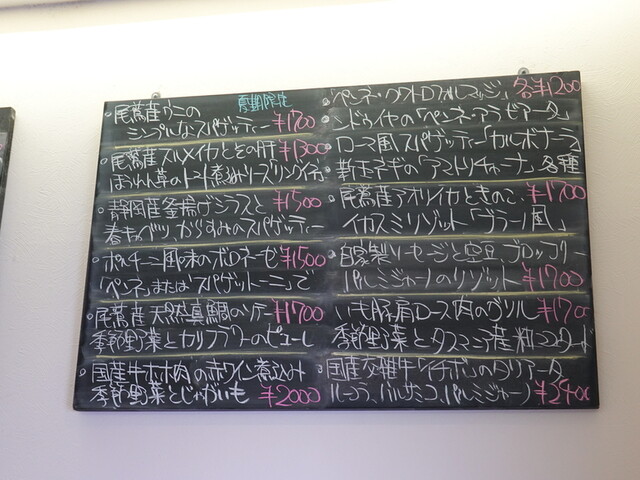 尾鷲産ウニの 夏期限定
シンプルなスパゲッティー ¥1700
尾鷲産スルメイカとその肝 ¥1300
ほうれん草のトマト煮込み
静岡産釜揚げシラスと ¥1500
春キャベツ、からすみのスパゲッティー
ポルチーニ風味のボロネーゼ ¥1500
「ペンネ」または「スパゲットーニ」で
尾鷲産天然真鯛のソテー ¥1700
季節野菜とカリフラワーのピューレ
国産牛ホホ肉の赤ワイン煮込み
季節野菜とじゃがいも ¥2000
「ペンネ・クアトロフォルマッジ」 各¥1200
ンドゥイヤの「ペンネ・アラビアータ」
ローマ風スパゲッティー「カルボナーラ」
新玉ネギの「アマトリチャーナ」各種
尾鷲産アオリイカときのこ、 ¥1700
イカスミリゾット「ブラーノ風」
自家製ソーセージと空豆、ブロッコリー
パルミジャーノのリゾット ¥1700
いも豚肩ロース肉のグリル ¥1700
季節野菜とタスマニア産粒マスタード
国産交雑牛「イチボ」のタリアータ
ルーコラ、バルサミコ、パルミジャーノ ¥2400